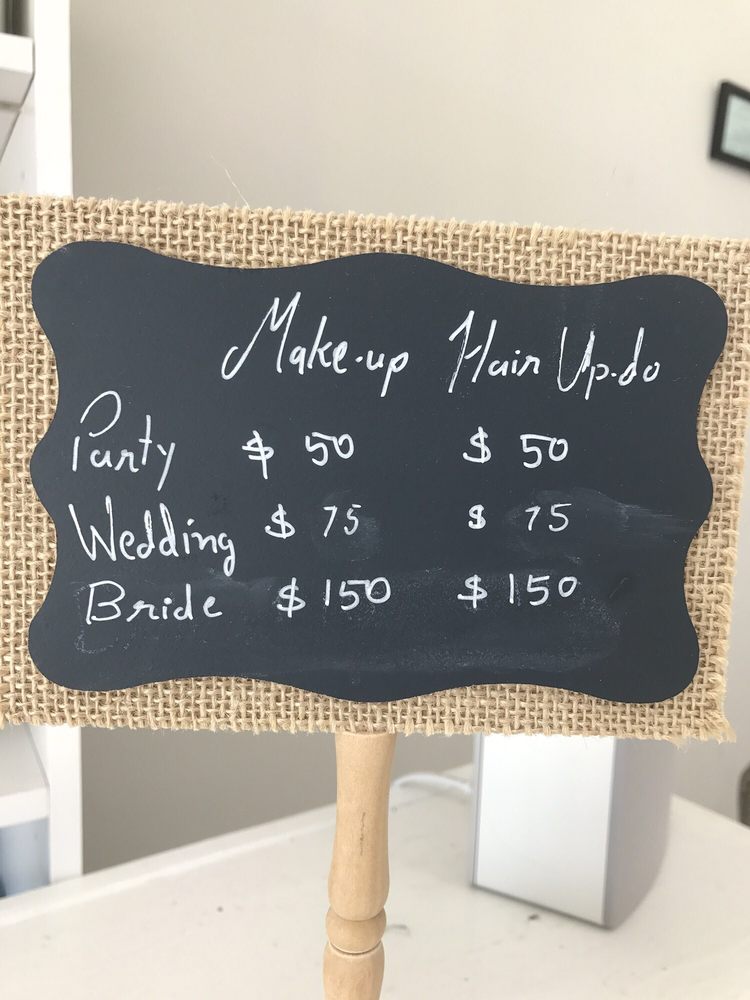 Make-up Hair Up-do
Party $ 50 $ 50
Wedding $ 75 $ 75
Bride $ 150 $ 150